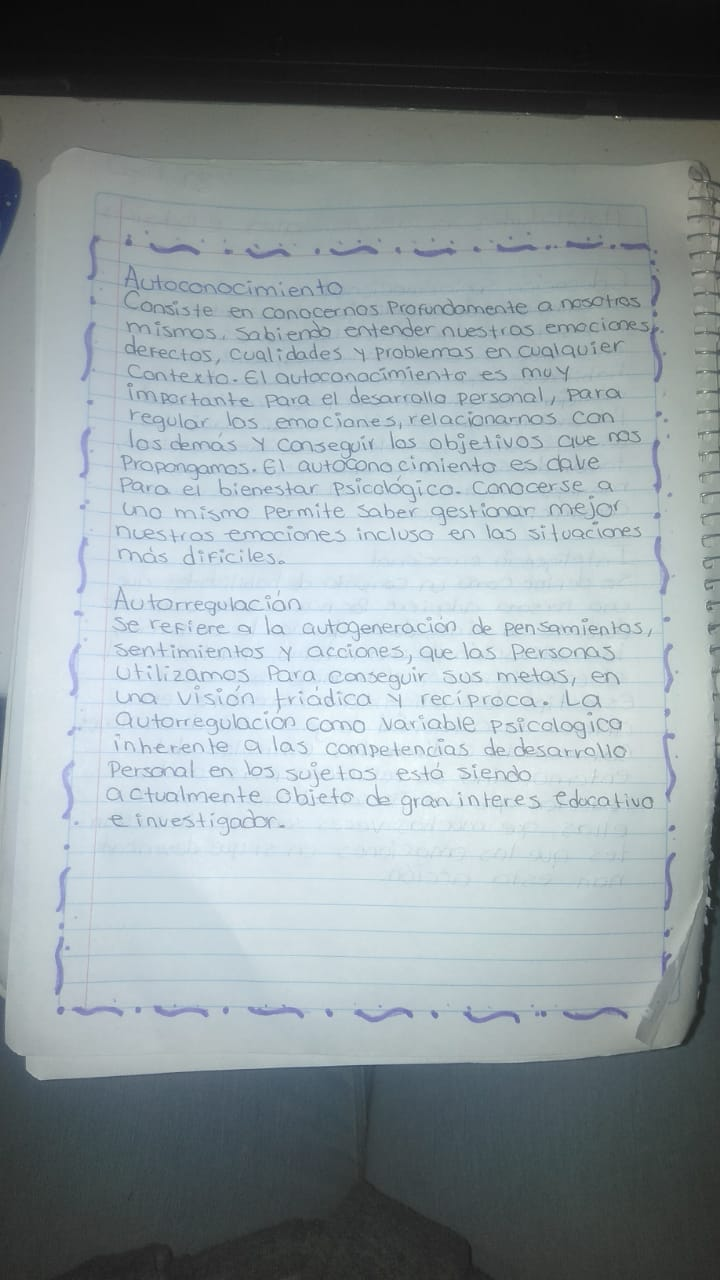 Autoconocimiento
Consiste en conocernos Profundamente a nosotros
mismos, sabiendo entender nuestras emociones,
defectos, cualidades y problemas en cualquier
contexto. El autoconocimiento es muy
importante para el desarrollo personal, para
regular las emociones, relacionarnos con
los demás y conseguir los objetivos que nos
Propongamos. El autoconocimiento es clave
Para el bienestar psicológico. Conocerse a
uno mismo permite saber gestionar mejor
nuestras emociones incluso en las situaciones
más dificiles.
Autorregulación
Se refiere a la autogeneración de pensamientos,
sentimientos y acciones, que las personas
utilizamos Para conseguir sus metas, en
una visión triádica y recíproca. La
autorregulación como variable psicologica
inherente a las competencias de desarrollo
Personal en los sujetos está siendo
actualmente objeto de gran interes educativo
e investigador.